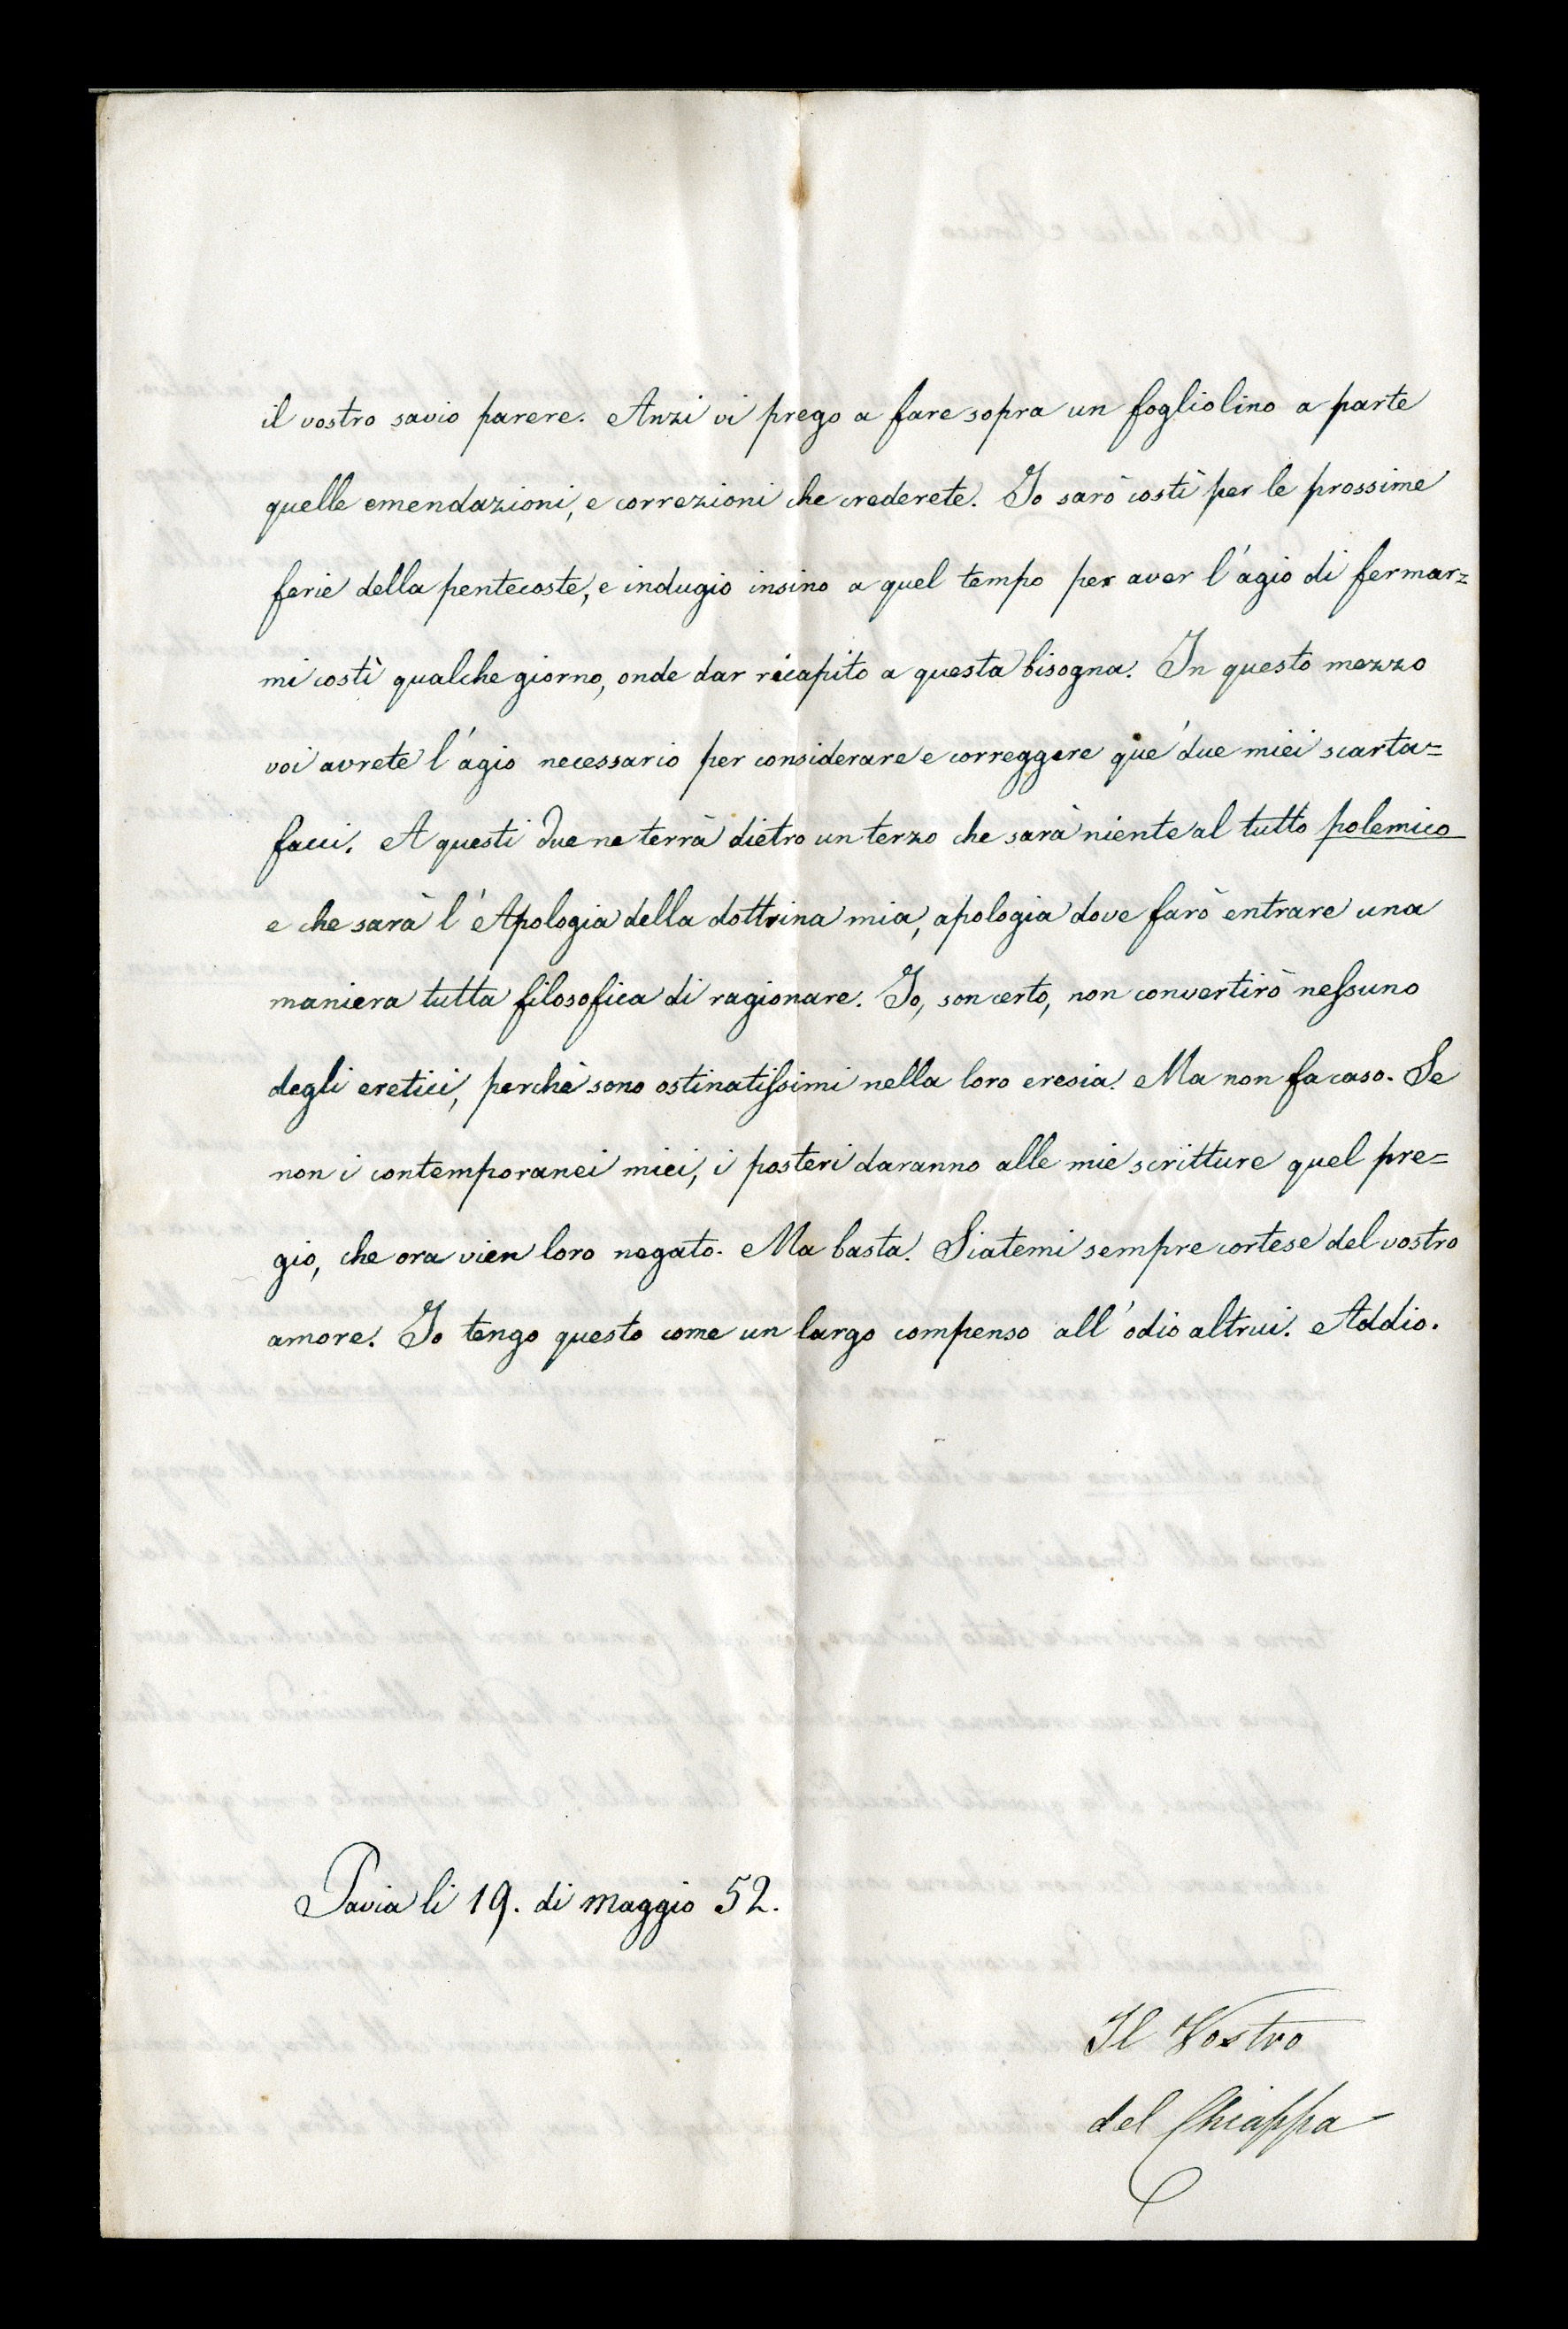 il vostro savio parere. Anzi vi prego a fare sopra un fogliolino a parte
quelle emendazioni, e correzioni che crederete. Io sarò costì per le prossime
ferie della pentecoste, e indugio insino a quel tempo per aver l'agio di fermar=
mi costì qualche giorno, onde dar ricapito a questa bisogna. In questo mezzo
voi avrete l'agio necessario per considerare e correggere que' due miei scarta=
facci. A questi due ne terrà dietro un terzo che sarà niente al tutto polemico
e che sarà l'Apologia della dottrina mia, apologia dove farò entrare una
maniera tutta filosofica di ragionare. Io, son certo, non convertirò nessuno
degli eretici, perchè sono ostinatissimi nella loro eresia. Ma non fa caso. Se
non i contemporanei miei, i posteri daranno alle mie scritture quel pre=
gio, che ora vien loro negato. Ma basta. Siatemi sempre cortese del vostro
amore. Io tengo questo come un largo compenso all'odio altrui. Addio.
Pavia li 19. di maggio 52.
Il Vostro
del Chiappa